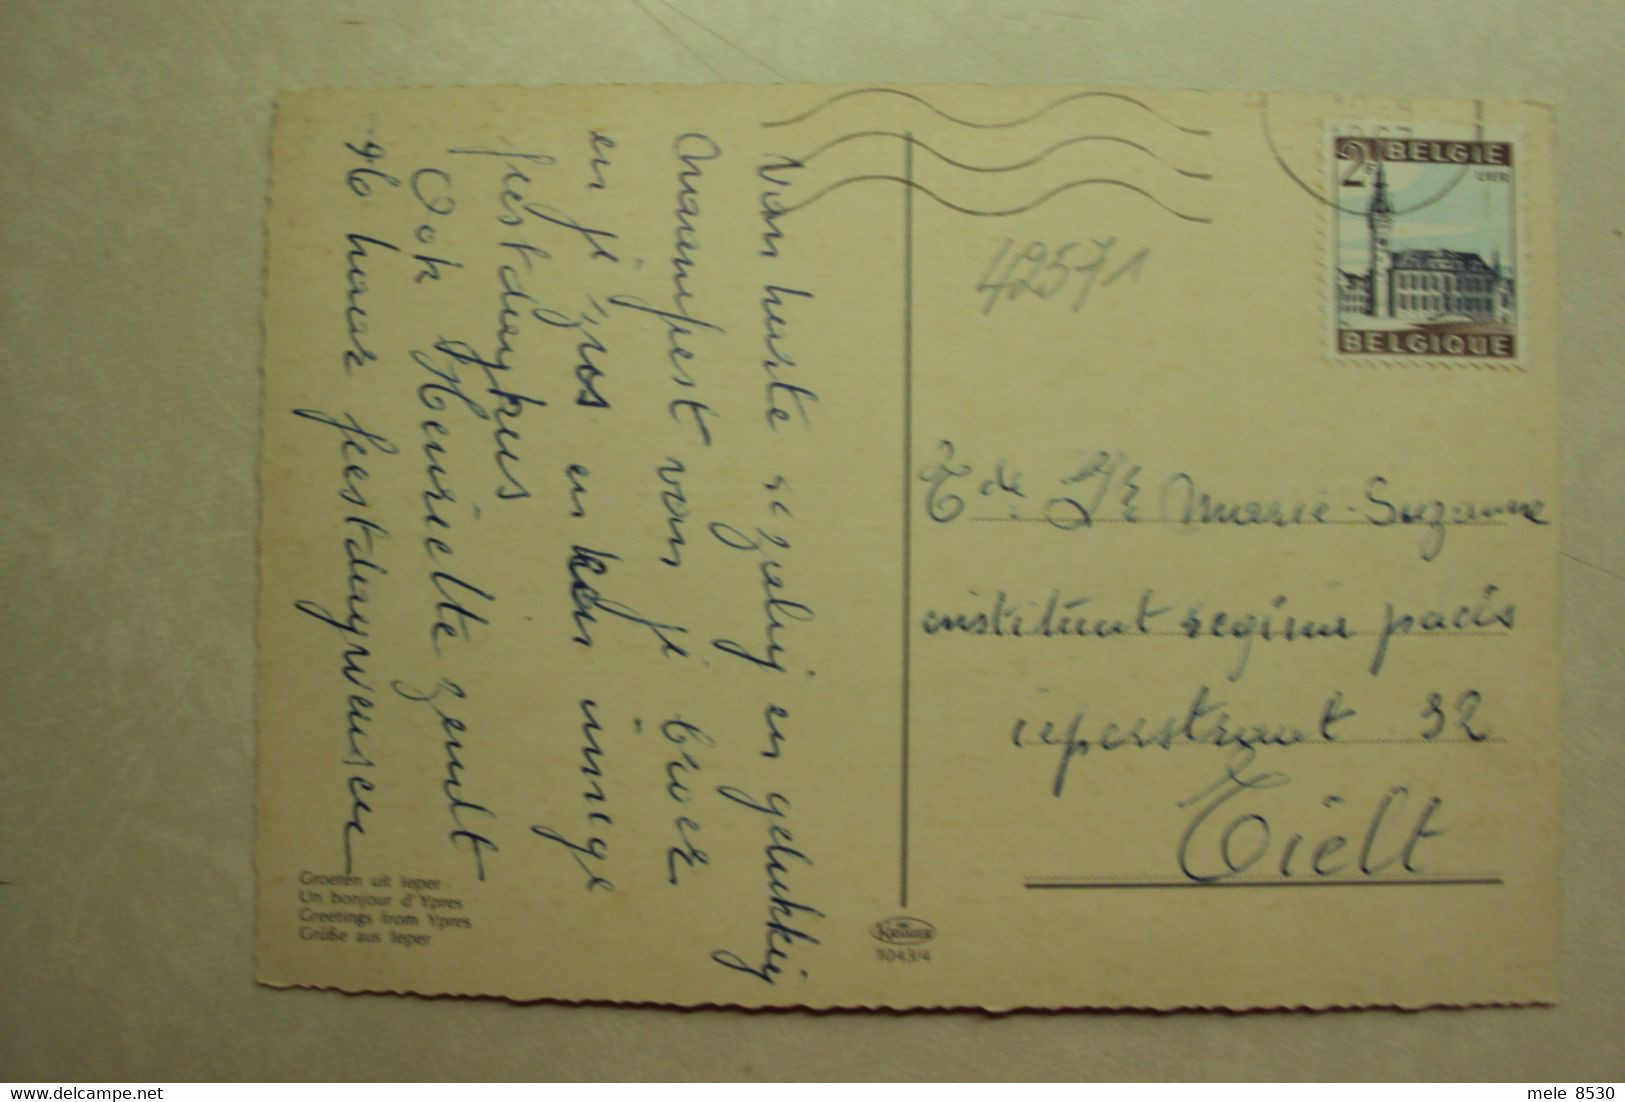 Van harte 'n zalig en gelukkig
Naamfeest van je broer
en je zus en een innige
feestdagkus
Ook Henriette zendt
haar feestdagwensen
Groeten uit Ieper
Un bonjour d'Ypres
Greetings from Ypres
Grüße aus Ieper
1043/4
42571
2F BELGIE
LIER
BELGIQUE
1967
Marie-Suzanne
instituut regina pacis
ieperstraat 32
Tielt
mele 8530